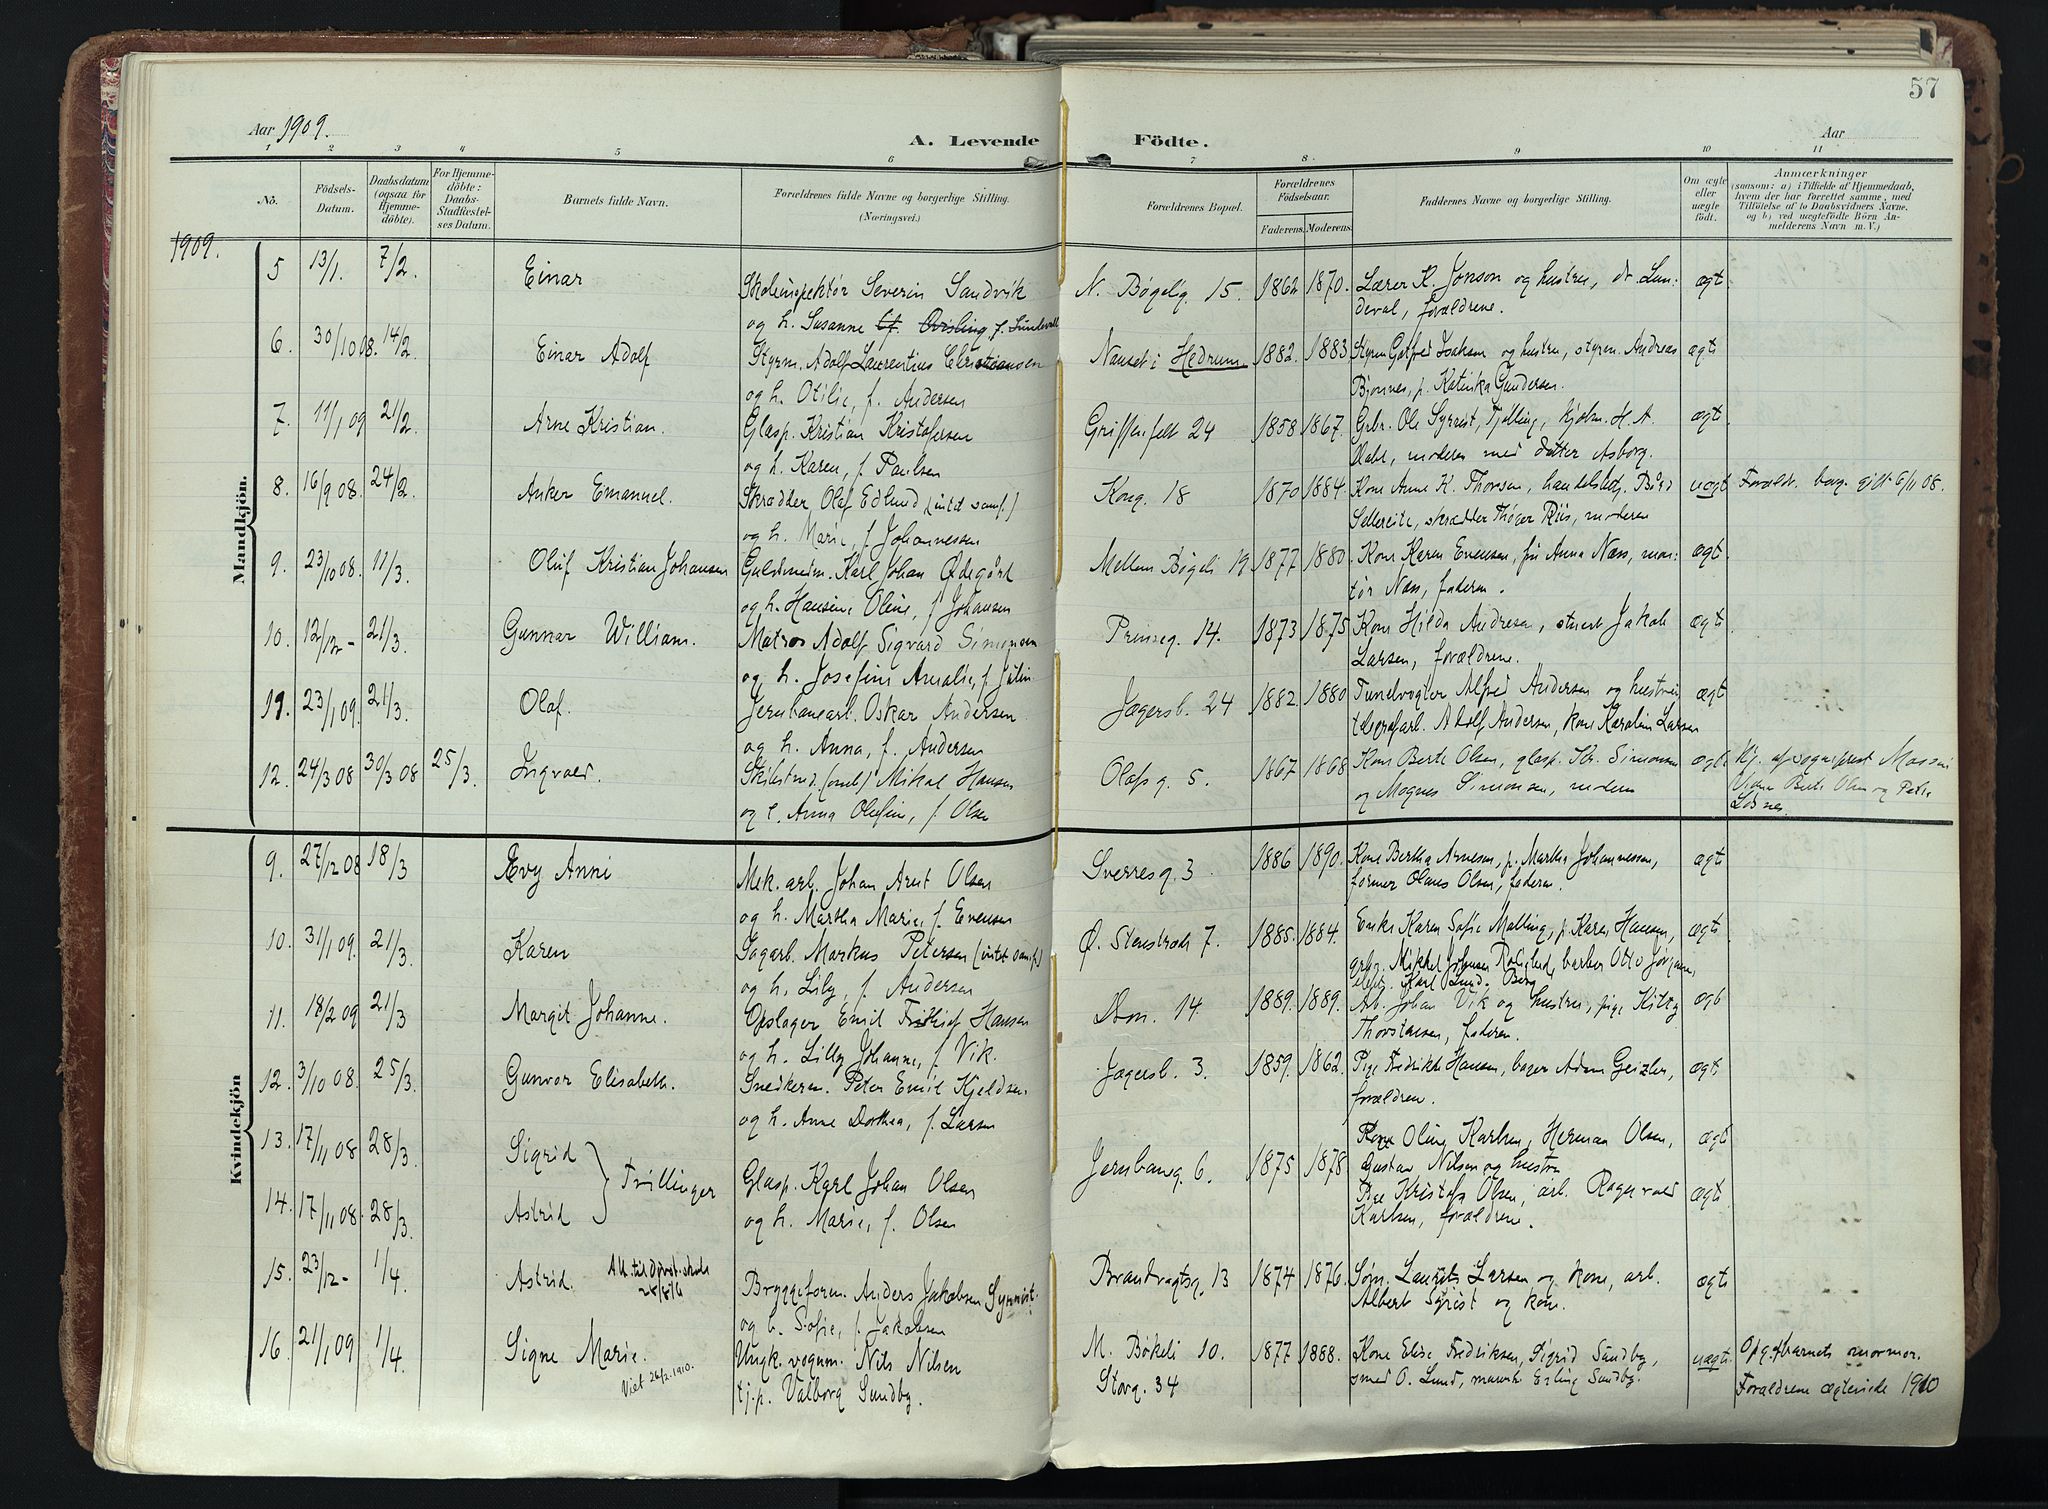 57
Aar 1909.
A. Levende Födte.
Aar
1 2 3 4 5 6 7 8 9 10 11
No.
Födsels-Datum.
Daabsdatum (ogsaa for Hjemme-döbte).
For Hjemme-döbte: Daabs-Stadfæstel-ses Datum.
Barnets fulde Navn.
Forældrenes fulde Navne og borgerlige Stilling. (Næringsvei.)
Forældrenes Bopæl.
Forældrenes Födselsaar.
Faderens. Moderens.
Faddernes Navne og borgerlige Stilling.
Om ægte eller uægte födt.
Anmærkninger
(saasom: a) i Tilfælde af Hjemmedaab, hvem der har forrettet samme, med Tilföielse af to Daabsvidners Navne, og b) ved uægtefödte Börn An-melderens Navn m. V.)
1909.
Mandkjön.
5 13/1. 7/2. Einar Skoleinspektør Severin Sandvik N. Bøgelig. 15. 1862 1870. Lærer K. Jonson og hustru, dr. Lun-
og h. Susanne Qvisling f. Lundevall deval, forældrene. ægt
6. 30/10 08. 14/2 Einar Adolf Styrm. Adolf Laurentius Christiansen Nanset i Hedrum 1882. 1883. Styrm Gotfred Isaksen og hustru, styrm. Andreas ægt
og h. Otilie, f. Andersen Bjønnes, p. Katinka Gundersen.
7. 11/1 09 21/2 Arne Kristian. Glasp. Kristian Kristofersen Griffenfelt 24 1858 1867. Grbr. Ole Syrrist, Tjølling, kjøbm. H. A. ægt
og h. Karen, f. Paulsen moderen med datter Asborg.
8. 16/9 08. 24/2 Anker Emanuel. Skrædder Olaf Edlund (utdt samf.) Kong. 18 1870 1884 Kone Anne K. Thorsen, handelsbtj. uægt Forældr. borg. gift 6/11 08.
og h. Marie, f. Johannessen skrædder Thøger Riis, moderen
9. 23/10 08. 11/3. Oluf Kristian Johansen Guldsmedm. Karl Johan Ødegård Mellem Bøgeli 19 1877 1880. Kone Karen Evensen, frk Anna Næss, mon- ægt
og h. Hansine Oline, f. Johansen tør Næss, faderen.
10. 12/12 - 21/3. Gunnar William. Matros Adolf Sigvard Simonsen Prinseg. 14. 1873 1875 Kone Hilda Andresen, stuert Jakob ægt
og h. Josefine Amalie, f. Larsen, forældrene.
11. 23/1 09. 21/3. Olaf. Jernbanearb. Oskar Andersen Jægersb. 24 1882. 1880 Tundvogter Alfred Andersen og hustru ægt
og h. Anna, f. Andersen telegrafarb. Adolf Andersen, kone Karolin Larsen
12. 24/3 08 30/3 08 25/3. Ingvald. Skibstmd. (omb) Mikal Hansen Olafs g. 5. 1867 1868 Kone Berte Olsen, glasp. Kr. Simonsen ægt Hj. af sogneprest
og h. Anna Olefine, f. Olsen og Magnus Simonsen, moderen Berte Olsen og
Kvindekjön
9. 27/12 08 18/3 Evy Anni Mek. arb. Johan Arnt Olsen Sverresg. 3. 1886 1890. Kone Bertha Arnesen, p. Martha Johannessen, ægt
og h. Martha Marie, f. Evensen former Olaus Olsen, faderen.
10. 31/1 09. 21/3. Karen Sagarb. Markus Petersen (utdt samf.) Ø. Stenstrads 7. 1885. 1884. Enke Karen Sofie Malling, p. Karen Hansen, ægt
og h. Lily, f. Andersen Mikkel Johansen Rolighed, barber Otto Jørgensen, Karl Lund. Berg
11. 18/2 09 21/3 Margit Johanne. Opslager Emil Fridthjof Hansen Dron. 14 1889. 1889. Arb. Johan Vik og hustru, pige Kitty ægt
og h. Lilly Johanne, f. Vik. Thorstensen, faderen.
12. 3/10 08. 25/3. Gunvor Elisabeth. Snedkerm. Peter Emil Kjeldsen Jægersb. 3. 1859. 1862. Pige Fredrikke Hansen, bager Adam Geizler, ægt
og h. Anne Dorthea, f. Larsen forældrene.
13. 17/11 08 28/3 Sigrid Kone Oline Karlsen, Herman Olsen, ægt
Trillinger Glasp. Karl Johan Olsen Jernbaneg. 6. 1875 1878 Gustav Nilsen og hustru
14. 17/11 08. 28/3. Astrid og h. Marie, f. Olsen Pige Kristofa Olsen, arb. Ragnvald ægt
Karlsen, forældrene.
15. 23/12 - 1/4. Astrid. Att. til 28/8/16 Bryggeform. Anders Jakobsen Syrrist. Brandvagtsg. 13 1874 1876. Søm. Laurits Larsen og kone, arb. ægt
og h. Sofie, f. Jakobsen Albert Syrist og kone.
16. 21/1 09 1/4. Signe Marie. Ungk. vognm. Nils Nilsen M. Bøkeli 10. 1877 1888. Kone Elise Fredriksen, Sigrid Sundby, uægt Opg. af barnets mormor.
Viet 26/2. 1910. tj.p. Valborg Sundby. Storg. 34 smed O. Lund, Erling Sundby. Forældrene ægteviede 1910